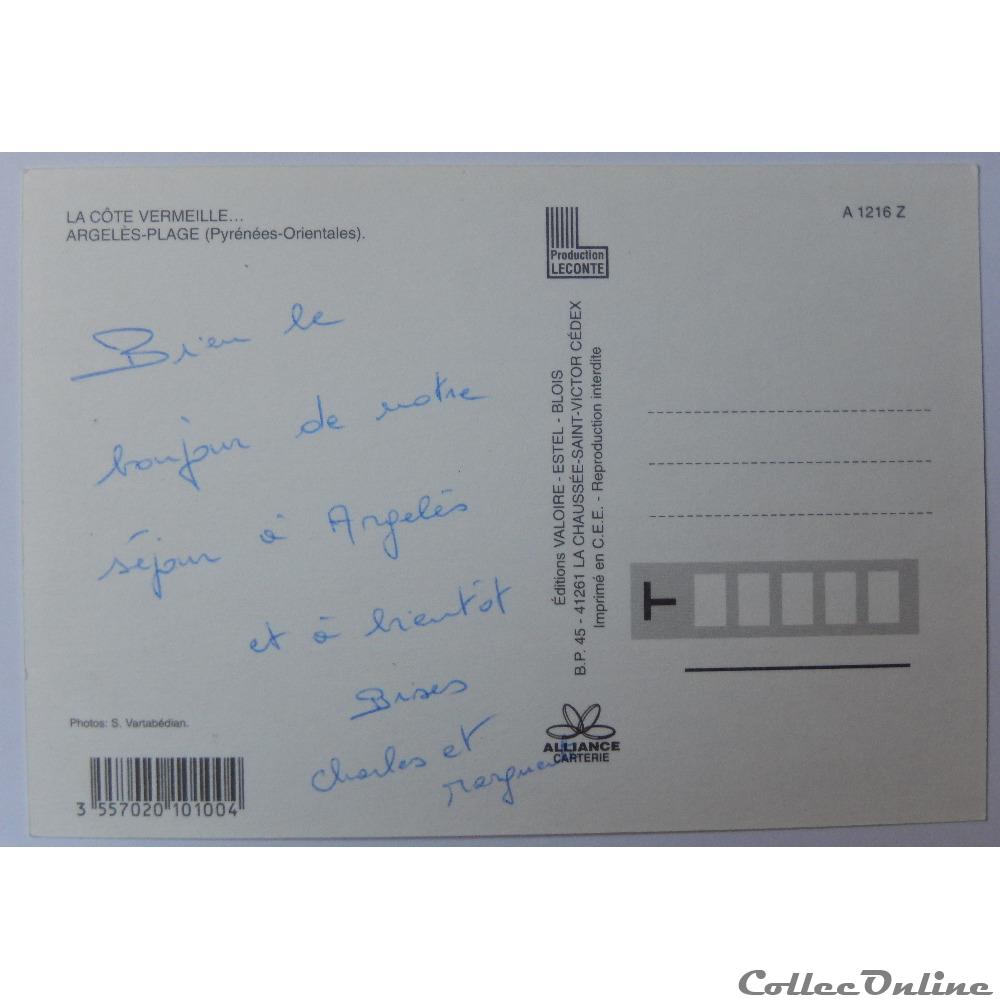 LA CÔTE VERMEILLE...
ARGELÈS-PLAGE (Pyrénées-Orientales).
Bien le
bonjour de notre
séjour à Argelès
et à bientôt
Bises
Charles et
Photos: S. Vartabédian.
3 557020 101004
Production
LECONTE
Éditions VALOIRE - ESTEL - BLOIS
B.P. 45 - 41261 LA CHAUSSÉE-SAINT-VICTOR CÉDEX
Imprimé en C.E.E. - Reproduction interdite
ALLIANCE
CARTERIE
A 1216 Z
T
CollecOnline